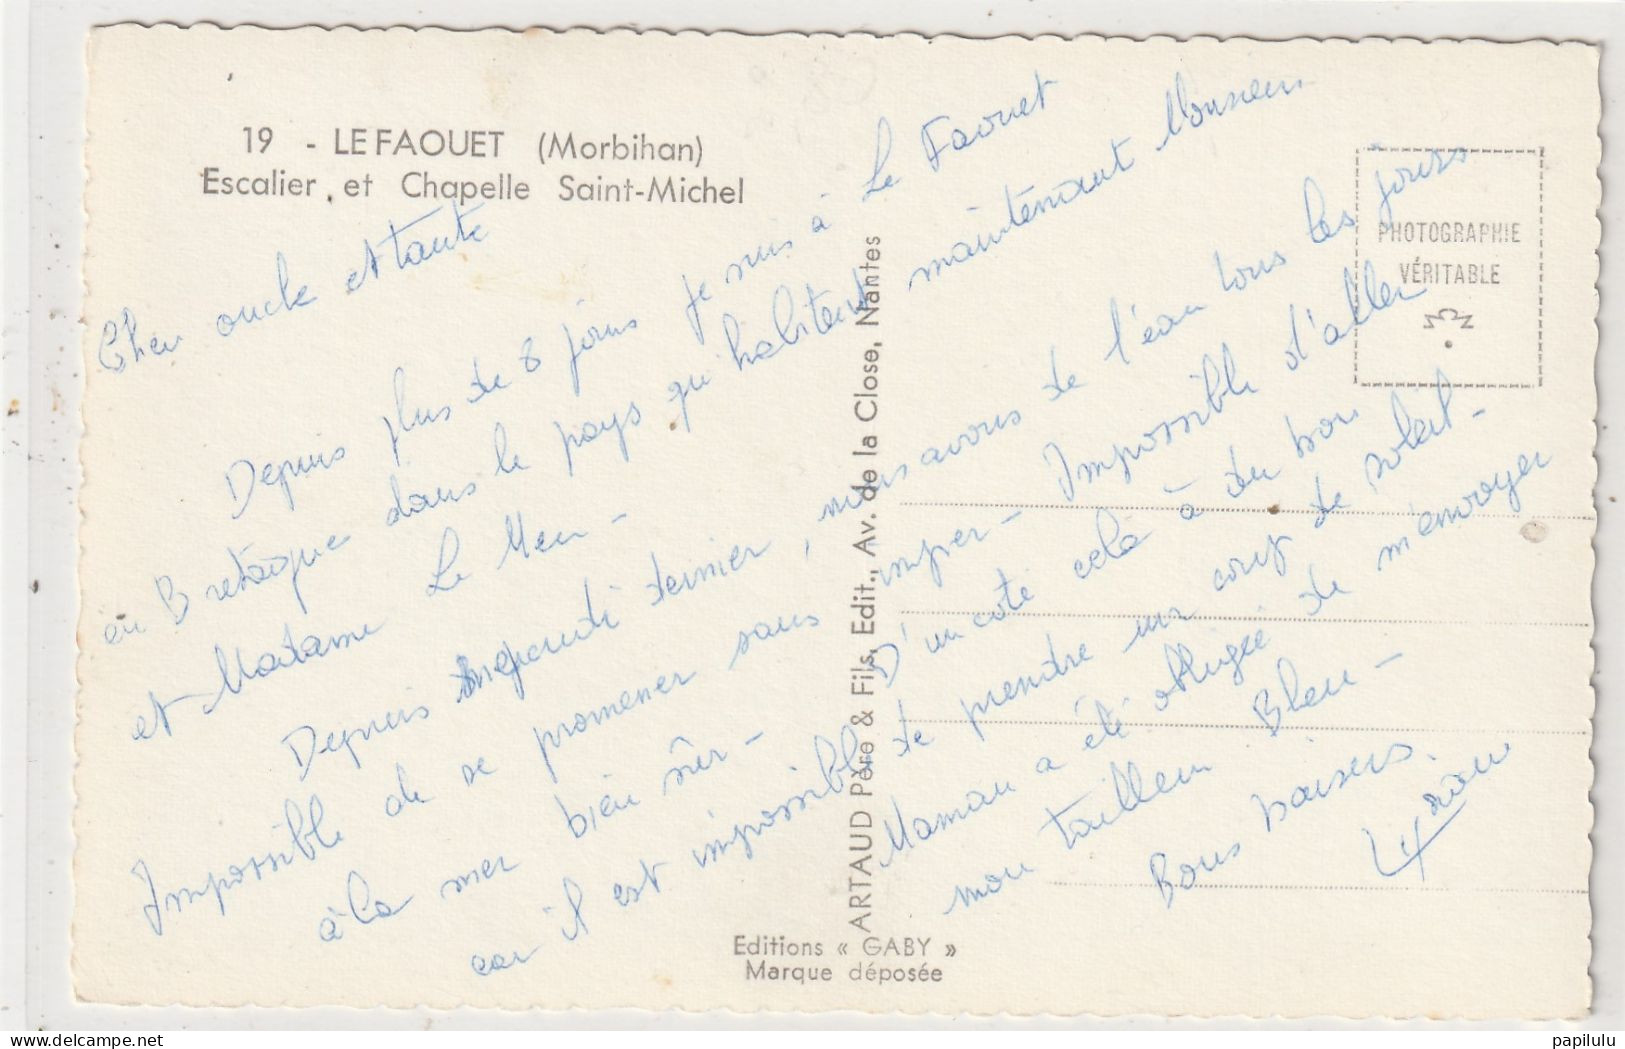 19 - LE FAOUET (Morbihan)
Escalier et Chapelle Saint-Michel
Cher oncle et tante
Depuis plus de 8 jours je suis à Le Faouet
en Bretagne dans le pays qu'habitent maintenant Monsieur
et Madame Le Meu -
Depuis dernier, nous avons de l'eau tous les jours
Impossible de se promener sans imper - Impossible d'aller
à la mer bien sûr - D'un coté celà à du bon
car il est impossible de prendre un coup de soleil -
Maman a été obligée de m'envoyer
mon tailleur Bleu -
Bons baisers.
PHOTOGRAPHIE
VÉRITABLE
ARTAUD Père & Fils, Edit., Av. de la Close, Nantes
Editions « GABY »
Marque déposée
delcampe.net
papilulu